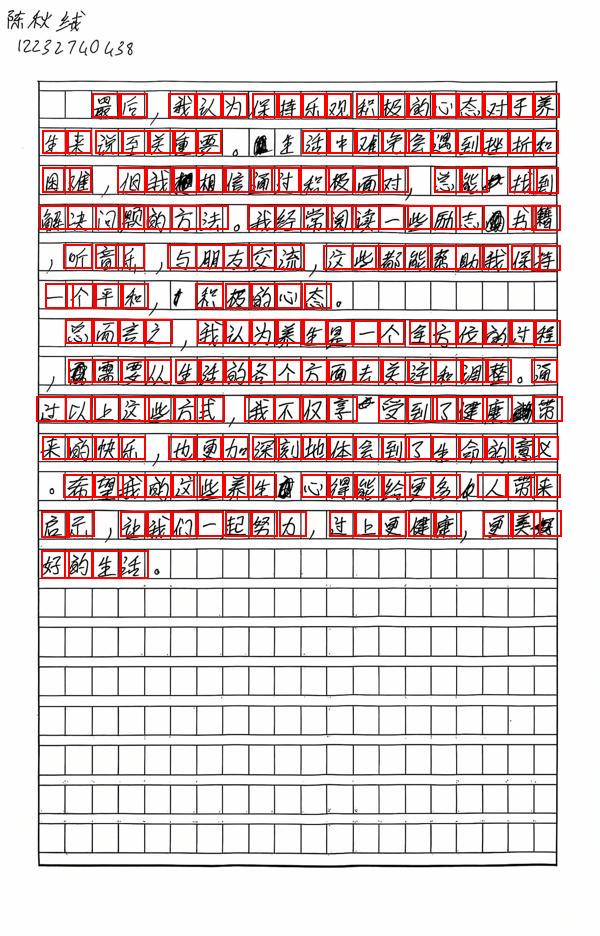 陈秋线
12232740438
最后，我认为保持乐观积极的心态对于养
生来说至关重要。生活中难免会遇到挫折和
困难，但我相信通过积极面对，总能找到
解决问题的方法。我经常阅读一些励志书籍
，听音乐，与朋友交流，这些都能帮助我保持
一个平和，积极的心态。
总而言之，我认为养生是一个全方位的过程
，需要从生活的各个方面去关注和调整。通
过以上这些方式，我不仅享受到了健康带
来的快乐，也更加深刻地体会到了生命的意义
。希望我的这些养生心得能给更多人带来
启示，让我们一起努力，过上更健康，更美
好的生活。